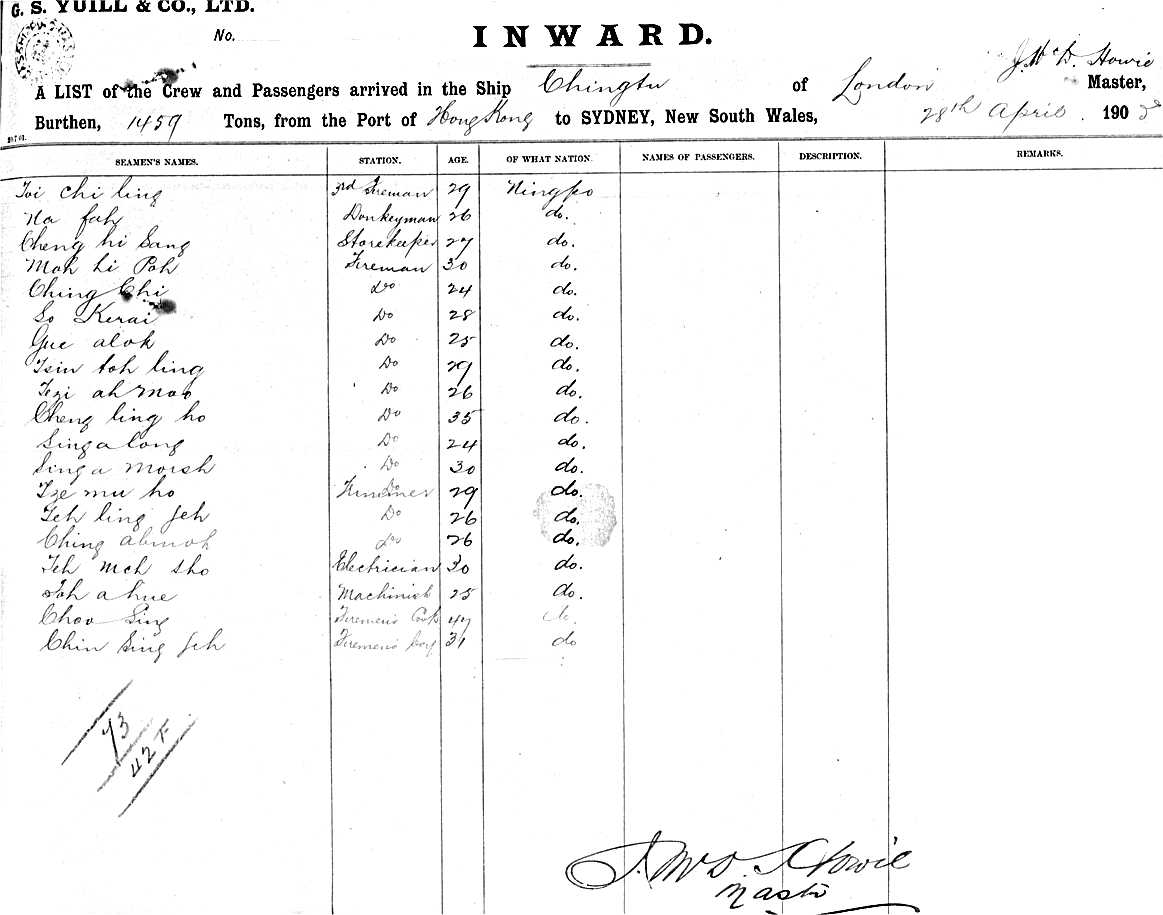 G. S. YUILL & CO., LTD.
No.
INWARD.
J. McD. Howie
A LIST of the Crew and Passengers arrived in the Ship Chingtu of London Master,
Burthen, 1459 Tons, from the Port of Hong Kong to SYDNEY, New South Wales, 28th April. 190
SEAMEN'S NAMES. STATION. AGE. OF WHAT NATION. NAMES OF PASSENGERS. DESCRIPTION. REMARKS.
Toi Chi ling 3rd Fireman 29 Ningpo
Na fah Donkeyman 26 do.
Cheng hi Sang Storekeeper 27 do.
Moh hi Poh Fireman 30 do.
Ching Chi Do 24 do.
So Kerai Do 28 do.
Gue alok Do 25 do.
Tsin toh ling Do 29 do.
ah Do 26 do.
Cheng ling ho Do 35 do.
Sing a long Do 24 do.
Sing a Morsh Do 30 do.
Tze mu ho 29 do.
Teh ling Jeh Do 26 do.
Ching ahmoh Do 26 do.
Teh meh sho Electrician 30 do.
Toh a hue Machinist 25 do.
Choo Sing Firemen's Cook 47 do.
Chin Sing Jeh Firemen's boy 31 do
73
42 F
J. McD. Howie
Master